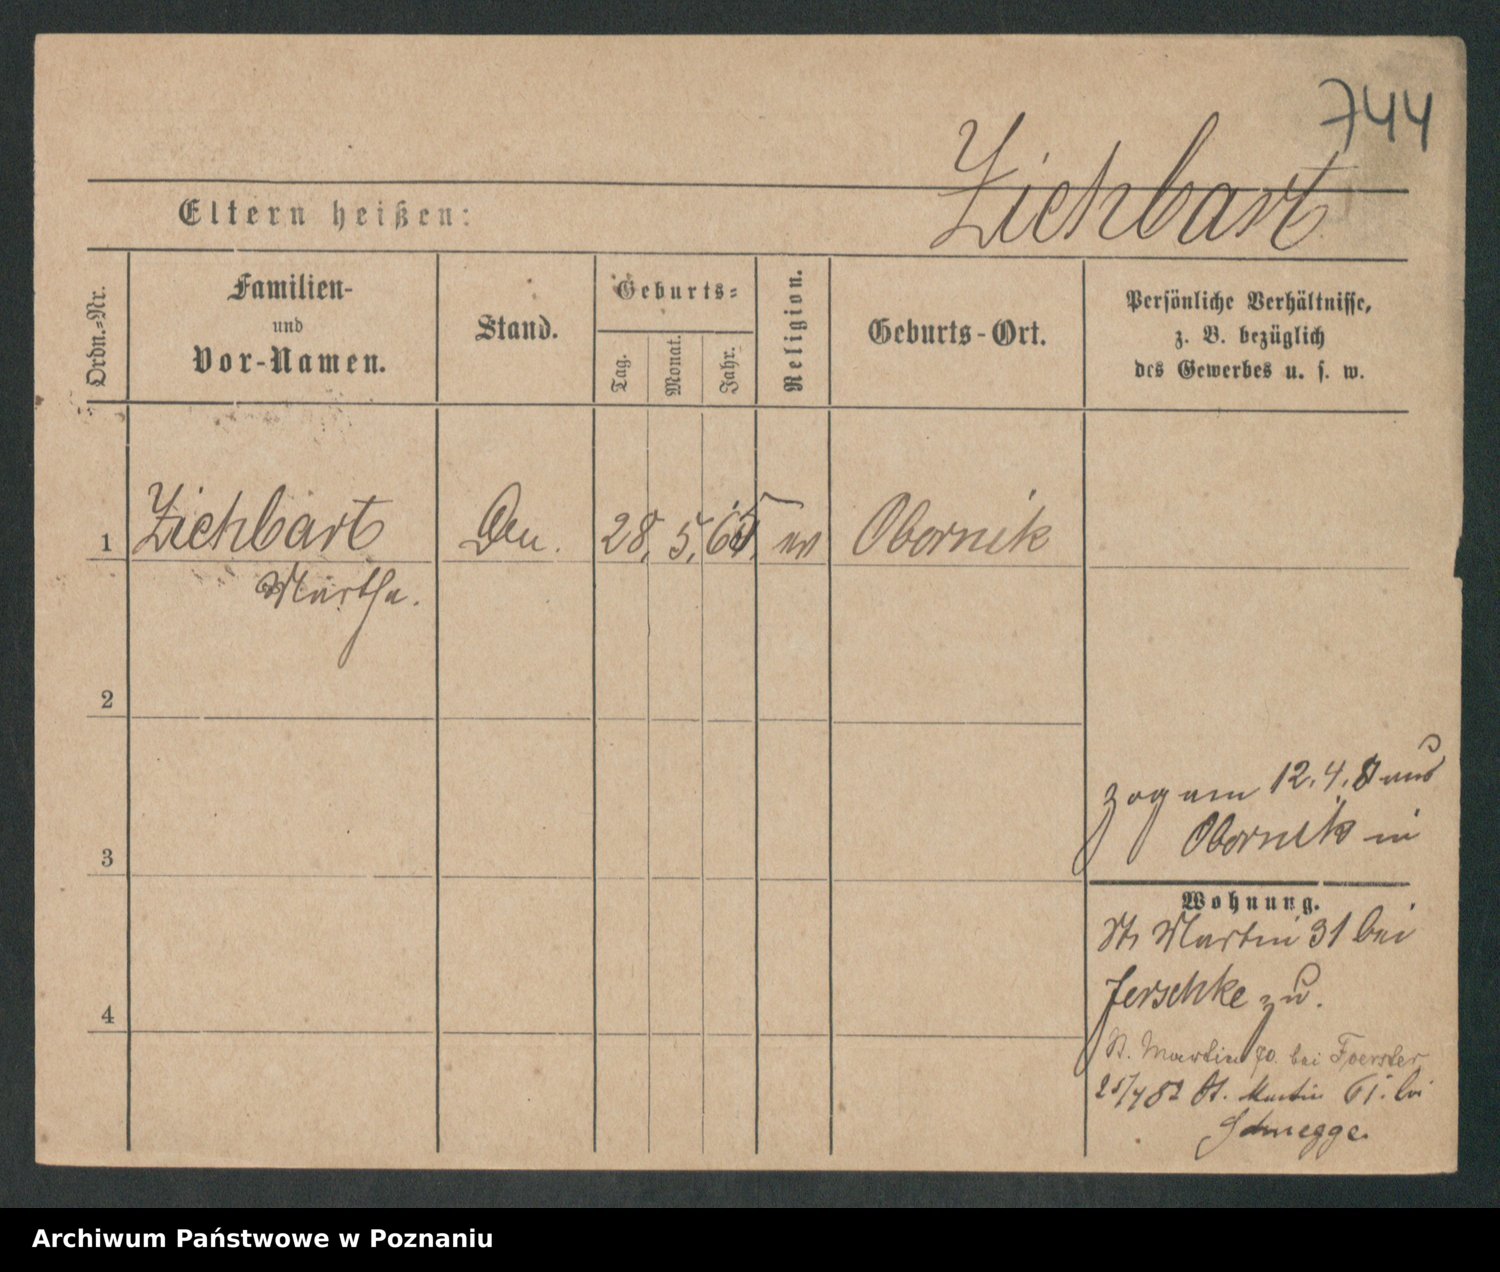 744
Zichbart
Eltern heißen:
Ordn.-Nr.
Familien-
und
Vor-Namen.
Stand.
Geburts-
Tag.
Monat.
Jahr.
Religion.
Geburts-Ort.
Persönliche Verhältnisse,
z. B. bezüglich
des Gewerbes u. s. w.
1 Zichbart 28. 5. 65. ev Obornik
Martha.
2
zog am 12. 4. aus
Obornik in
3
Wohnung.
St Martin 31 bei
Jerschke zu.
4
St. Martin 70. bei Foerster
St. Martin 61. bei